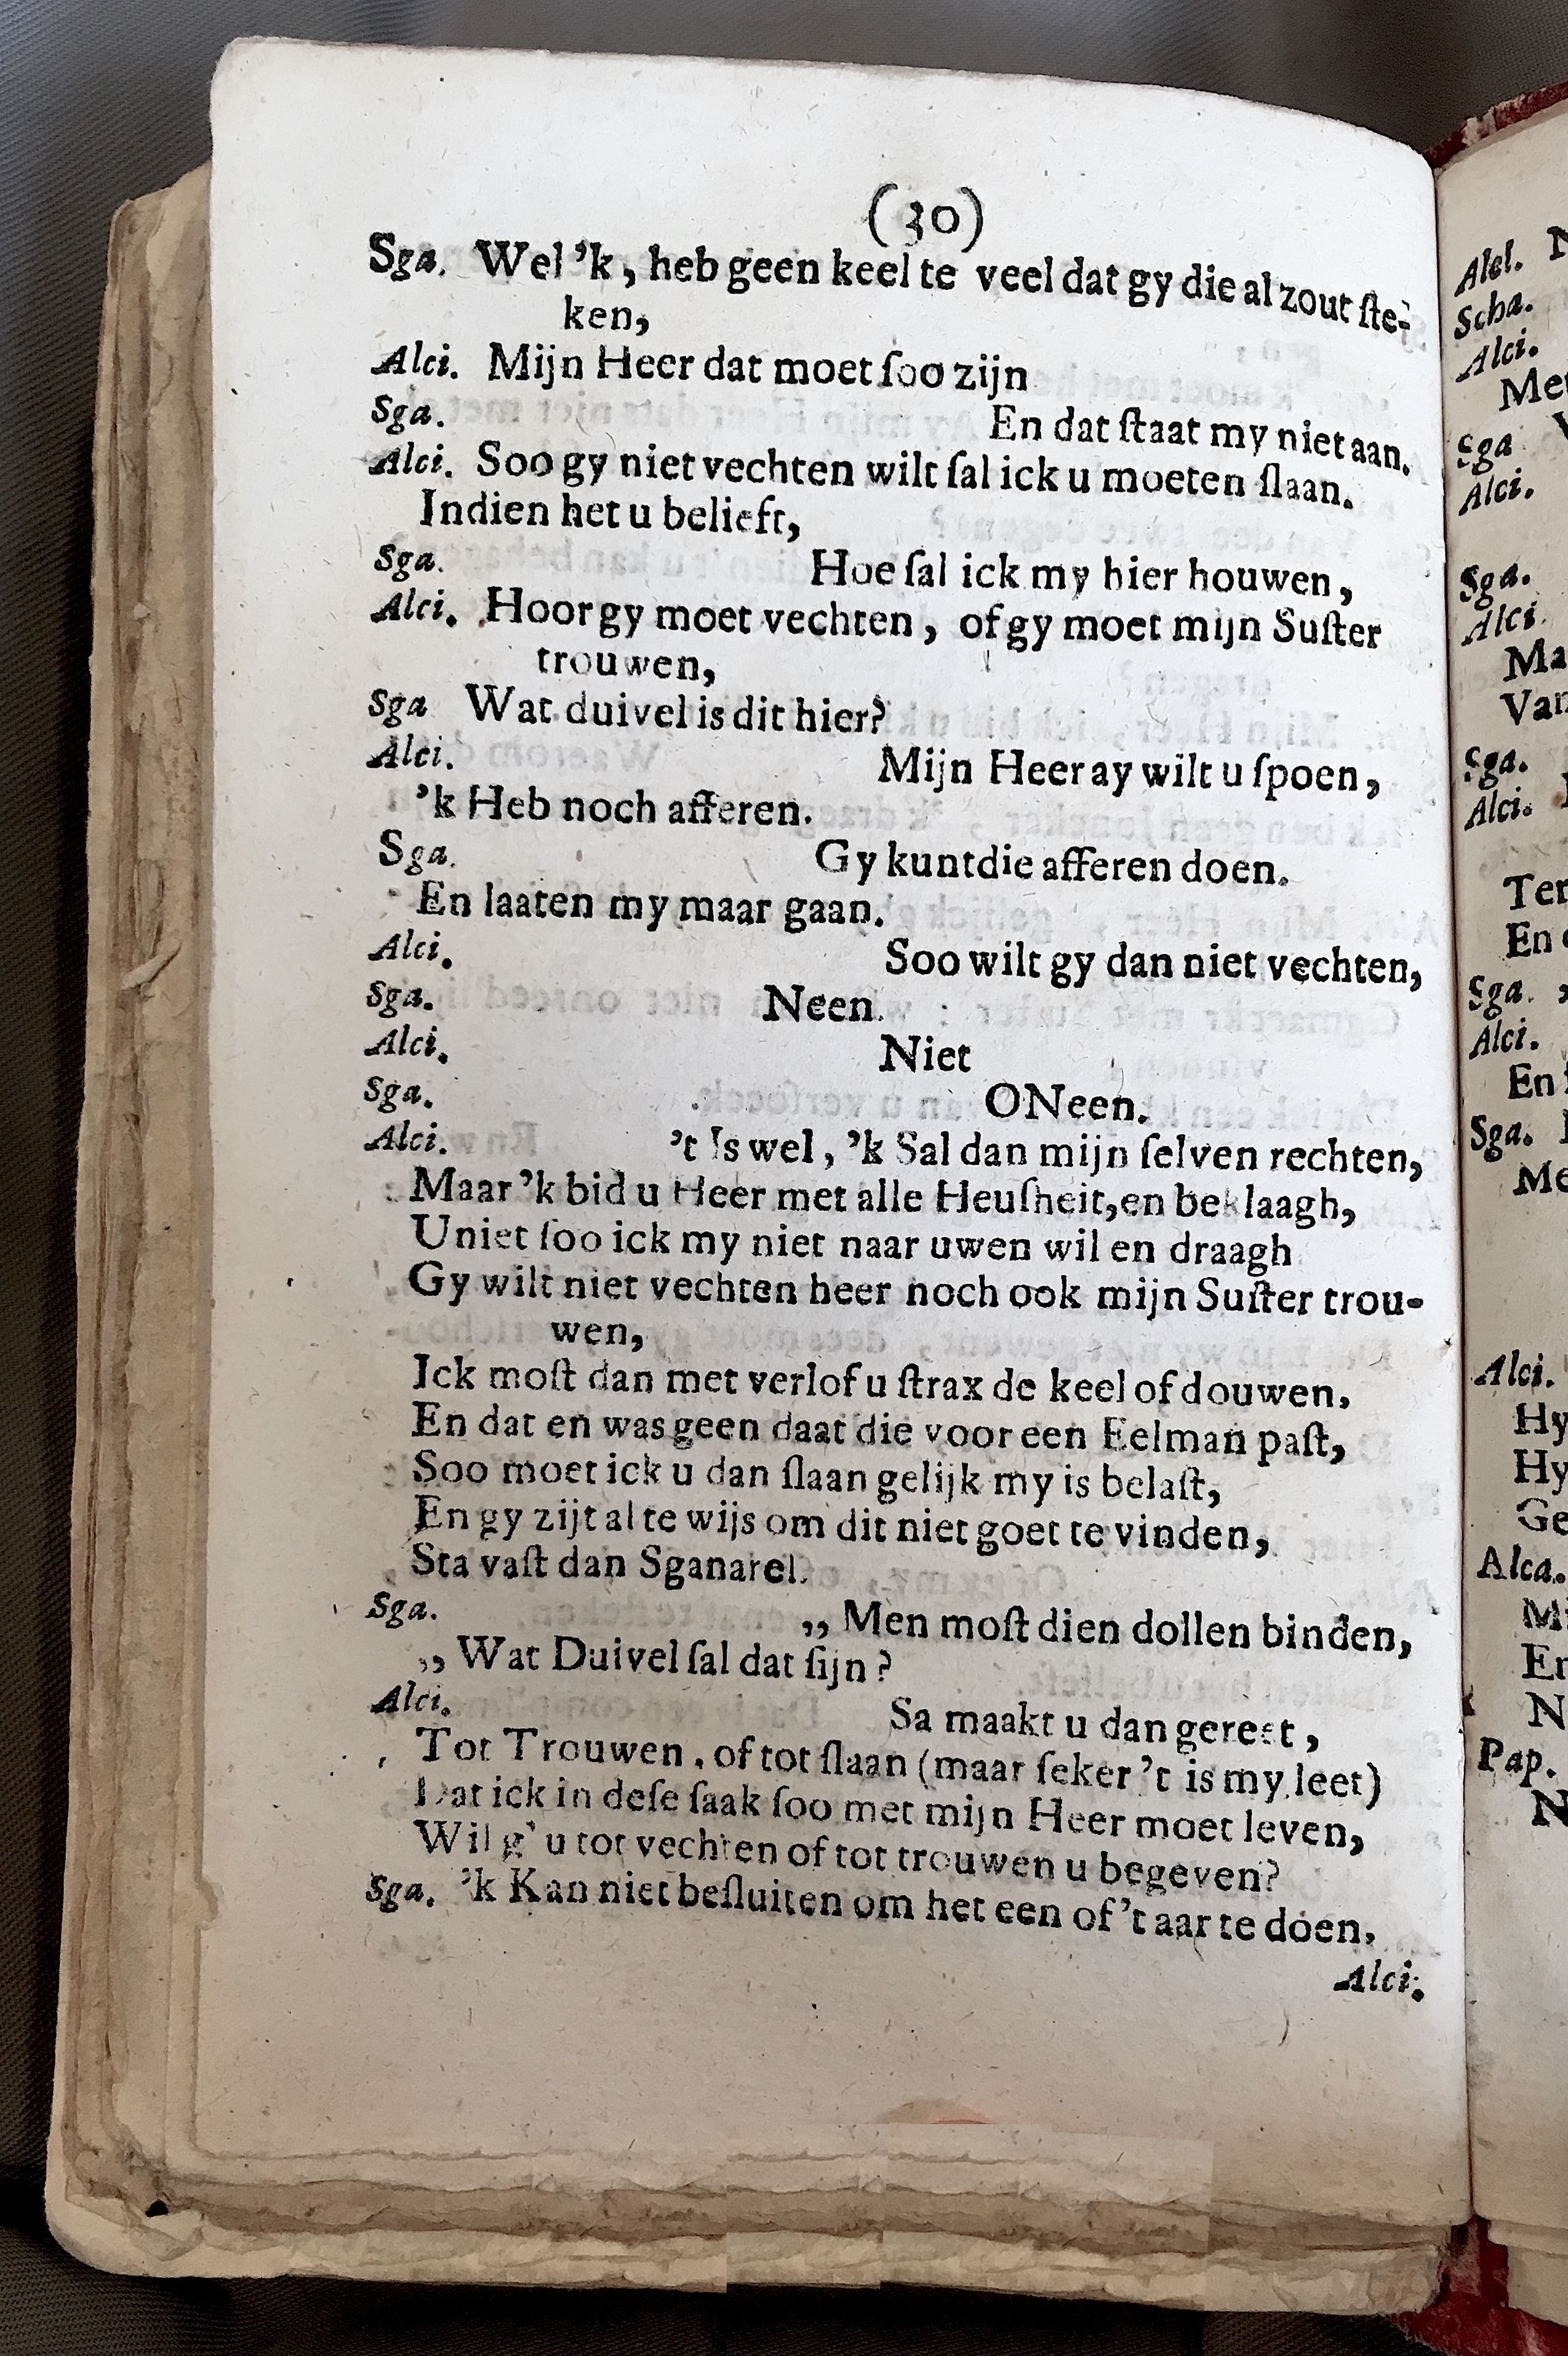 (30)
Sga. Wel 'k, heb geen keel te veel dat gy die al zout ſte-
ken,
Alci. Mijn Heer dat moet ſoo zijn
Sga. En dat ſtaat my niet aan.
Alci. Soo gy niet vechten wilt ſal ick u moeten ſlaan.
Indien het u belieft,
Sga. Hoe ſal ick my hier houwen,
Alci. Hoor gy moet vechten, of gy moet mijn Suſter
trouwen,
Sga Wat duivel is dit hier?
Alci. Mijn Heer ay wilt u ſpoen,
'k Heb noch afferen.
Sga. Gy kunt die afferen doen.
En laaten my maar gaan.
Alci. Soo wilt gy dan niet vechten,
Sga. Neen.
Alci. Niet
Sga. ONeen.
Alci. 't Is wel, 'k Sal dan mijn ſelven rechten,
Maar 'k bid u Heer met alle Heuſheit, en beklaagh,
U niet ſoo ick my niet naar uwen wil en draagh
Gy wilt niet vechten heer noch ook mijn Suſter trou-
wen,
Ick moſt dan met verlof u ſtrax de keel of douwen,
En dat en was geen daat die voor een Eelman paſt,
Soo moet ick u dan ſlaan gelijk my is belaſt,
En gy zijt al te wijs om dit niet goet te vinden,
Sta vaſt dan Sganarel.
Sga. ,, Men moſt dien dollen binden,
,, Wat Duivel ſal dat ſijn?
Alci. Sa maakt u dan gereet,
Tot Trouwen, of tot ſlaan (maar ſeker 't is my leet)
Dat ick in deſe ſaak ſoo met mijn Heer moet leven,
Wil g' u tot vechten of tot trouwen u begeven?
Sga. 'k Kan niet beſluiten om het een of 't aar te doen.
Alci.
Alcl.
Scha.
Alci.
Sga
Alci.
Sga.
Alci.
Ma
Van
Sga.
Alci.
Ter
En
Sga.
Alci.
En
Sga.
Me
Alci.
Hy
Hy
Ge
Alca.
Mi
En
N
Pap.
N